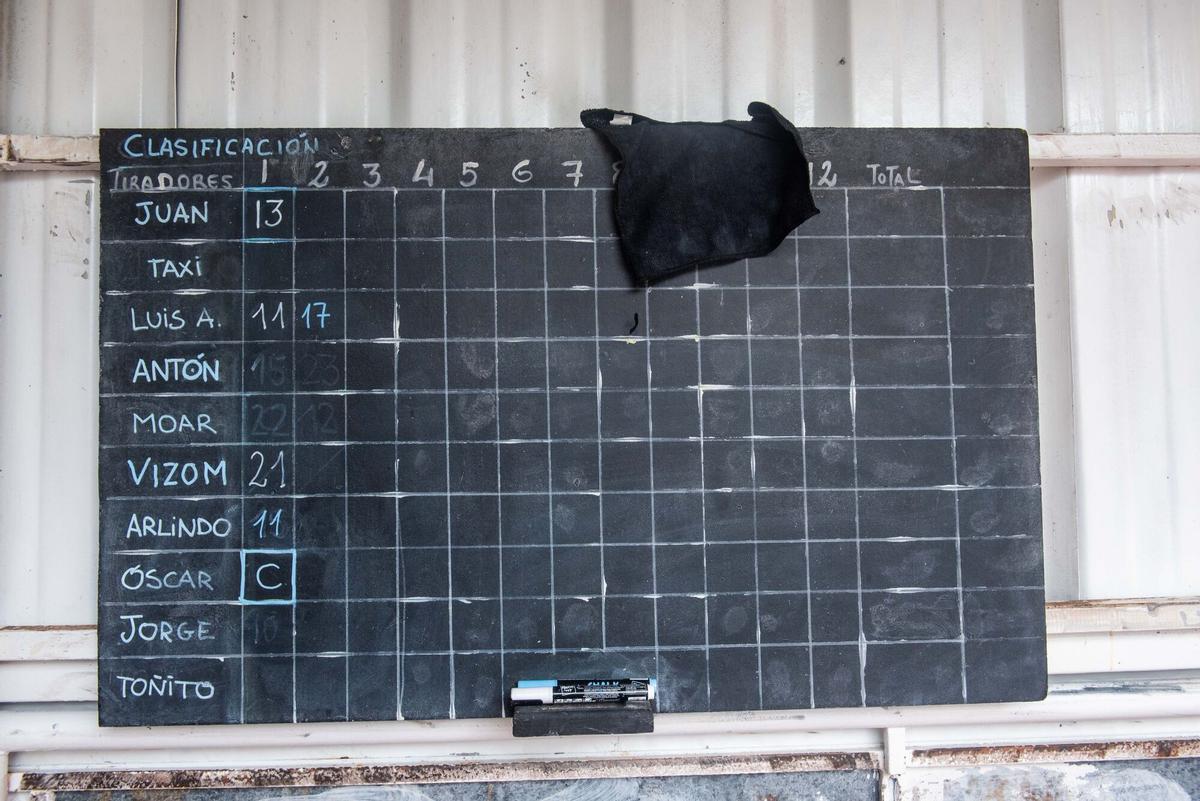 CLASIFICACIÓN
TIRADORES 1 2 3 4 5 6 7 12 TOTAL
JUAN 13
TAXI
LUIS A. 11 17
ANTÓN 15 23
MOAR 22 12
VIZOM 21
ARLINDO 11
ÓSCAR C
JORGE 10
TOÑITO
CHALK